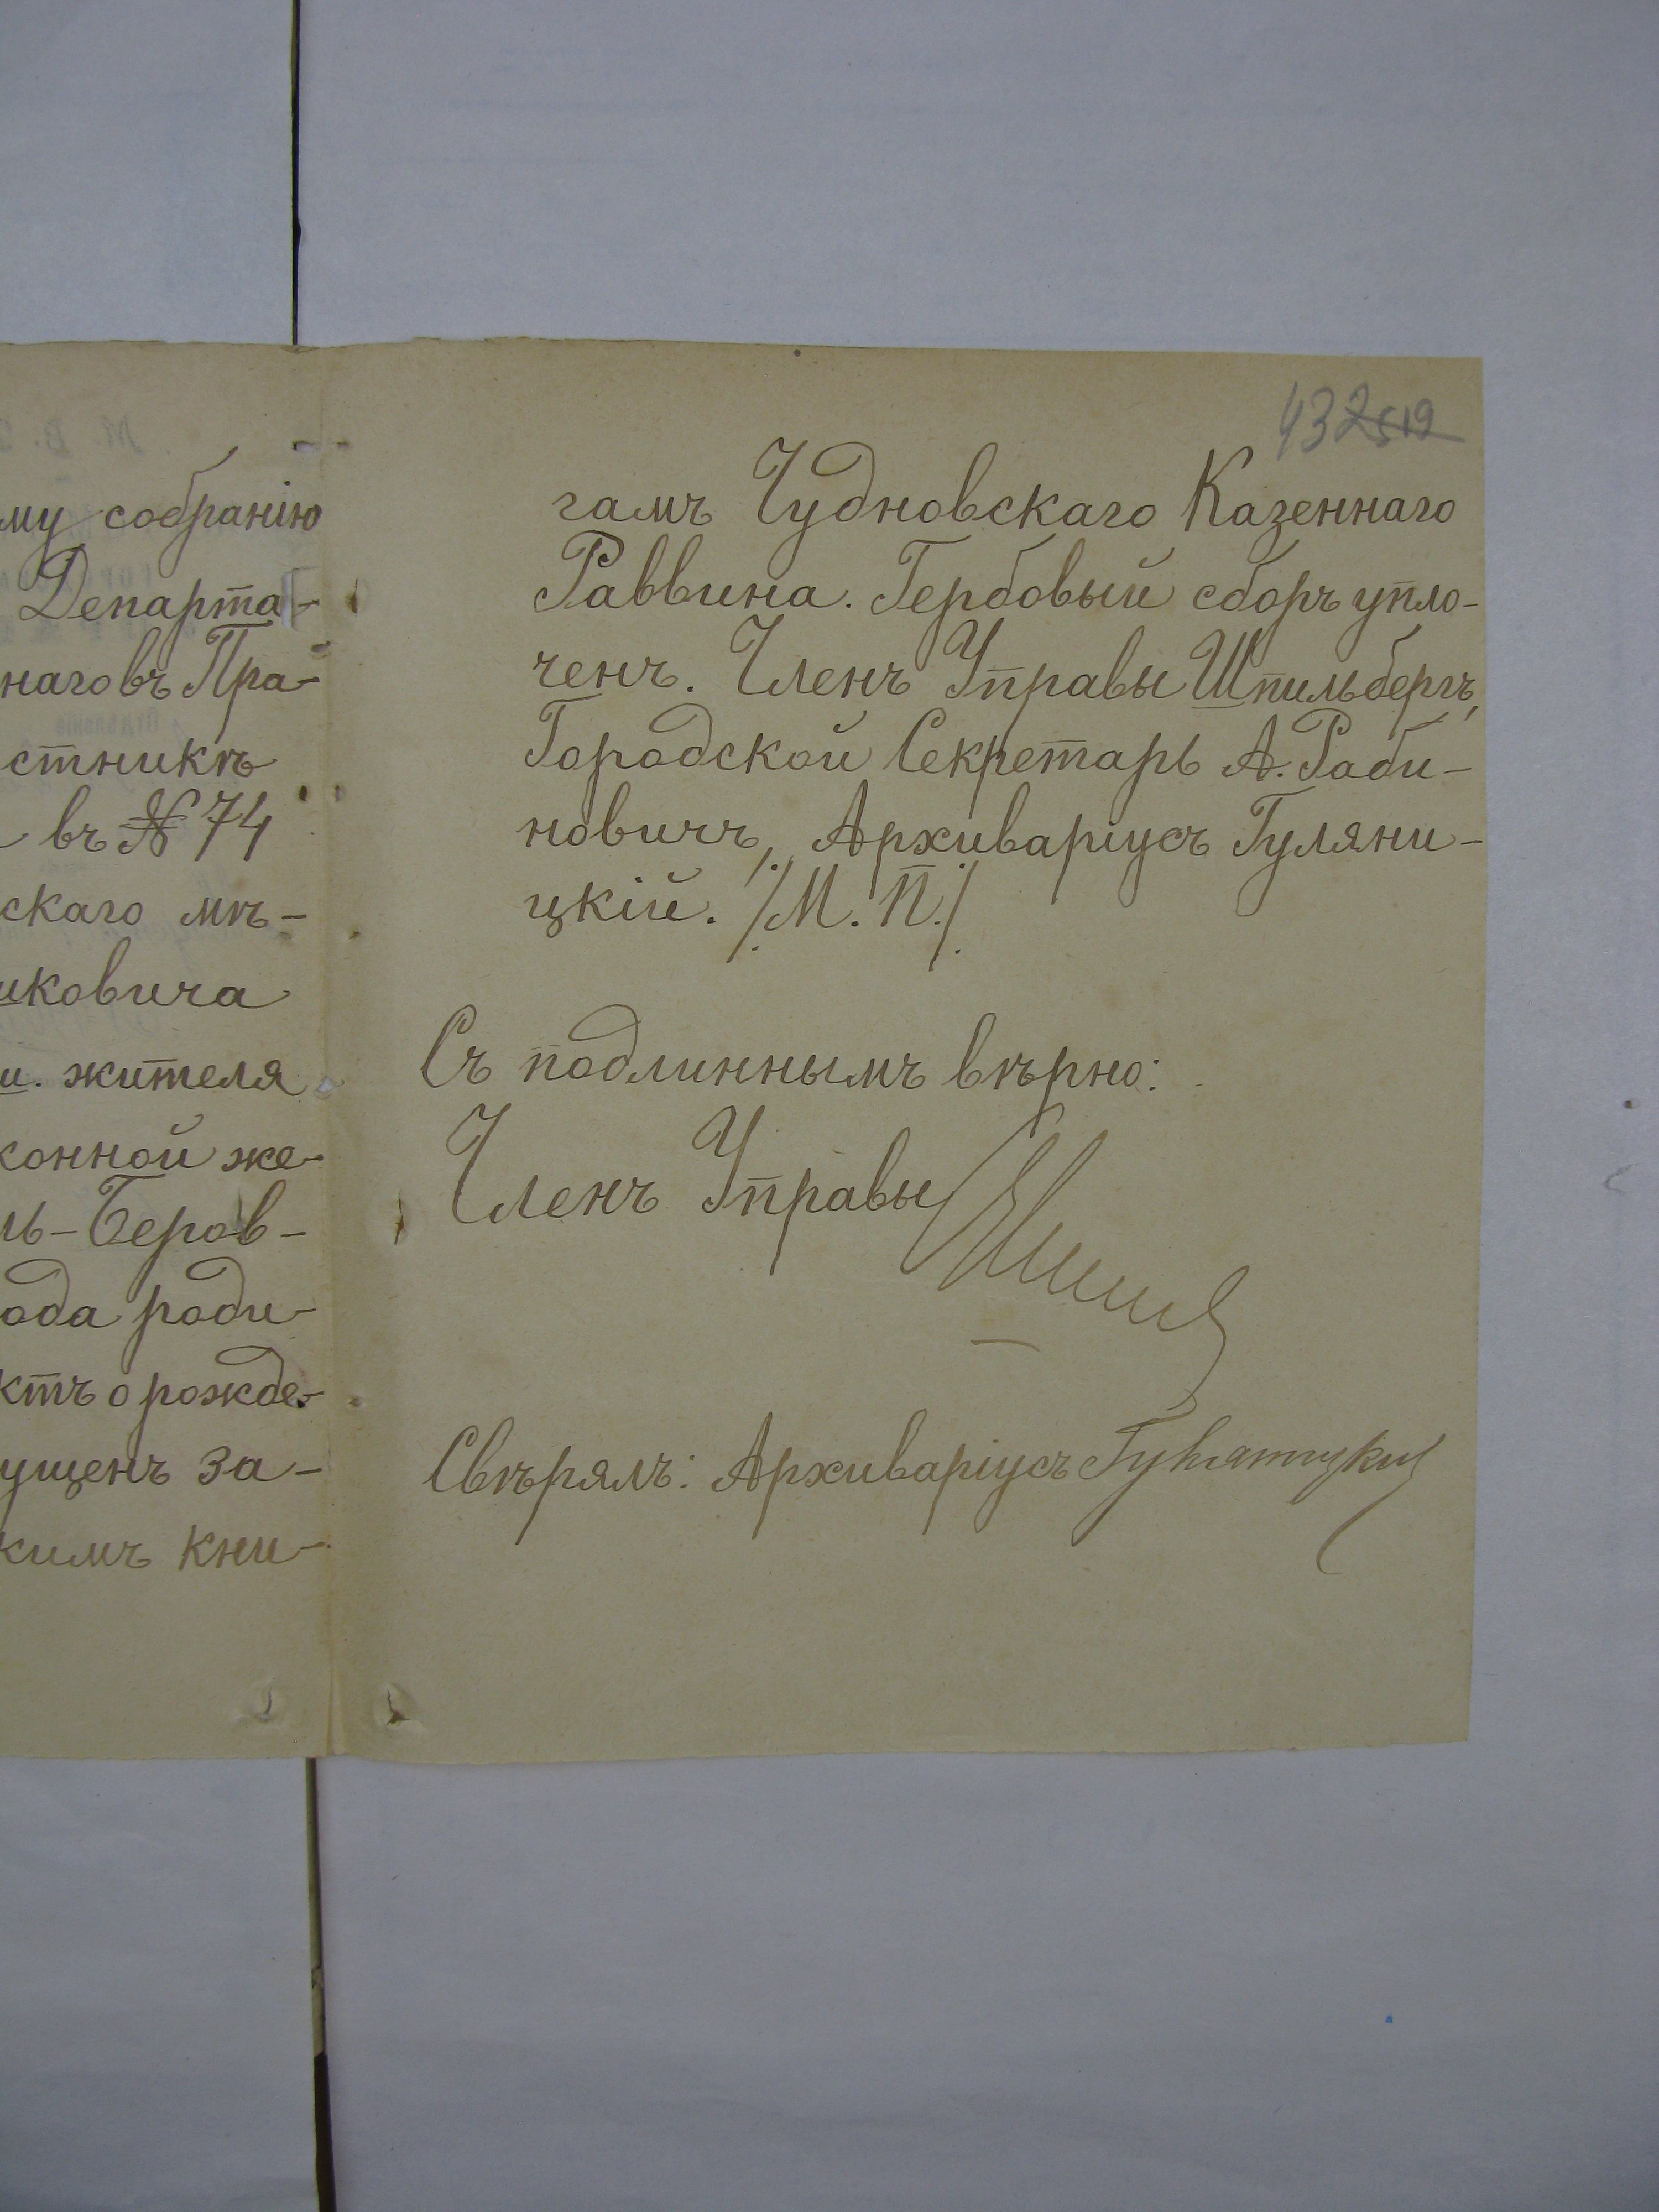 му собранію
Департа-
наго въ Пра-
стникѣ
въ № 74
скаго мѣ-
иковича
и. жителя
конной же-
ль-Беров-
ода роди-
ктъ о рожде-
ущенъ за-
кимъ кни-
432
519
гамъ Чудновскаго Казеннаго
Раввина. Гербовый сборъ упло-
ченъ. Членъ Управы Шпильбергъ,
Городской Секретарь А. Раби-
новичъ, Архиваріусъ Гуляни-
цкій. /М. П./
Съ подлиннымъ вѣрно:
Членъ Управы
Свѣрялъ: Архиваріусъ Гуляницкій